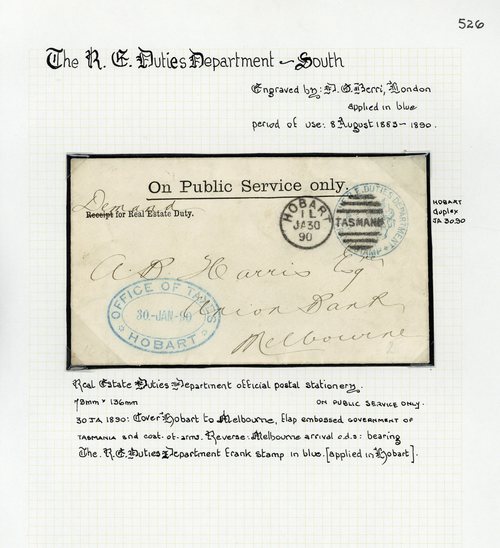 526
The R. E. Duties Department ~ South
Engraved by: D. G. Berri, London
applied in blue
period of use: 8 August 1883 ~ 1890.
On Public Service only.
Demand
Receipt for Real Estate Duty.
HOBART
1 L
JA 30
90
TASMANIA
R.E. DUTIES DEPARTMENT
STAMP
HOBART
duplex
JA 30.90
A R Harris Esqr
Union Bank
Melbourne
OFFICE OF TAXES
30-JAN-90
HOBART
Real Estate Duties Department official postal stationery.
79mm x 136mm
ON PUBLIC SERVICE ONLY.
30 JA 1890: Cover Hobart to Melbourne, flap embossed GOVERNMENT OF
TASMANIA and coat-of-arms. Reverse: Melbourne arrival c.d.s: bearing
The R.E. Duties Department frank stamp in blue. [applied in Hobart].